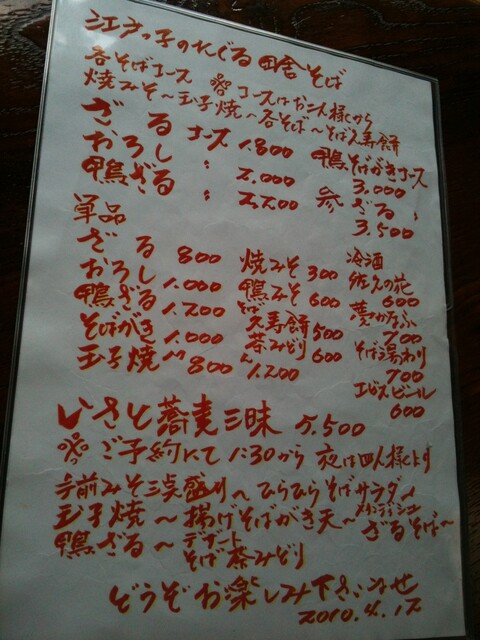 江戸っ子の打てる田舎そば
各そばコース ※コースはお二人様から
焼みそ〜玉子焼〜各そば〜そば久寿餅
ざる コース 1.800 鴨そばがきコース 3.000
おろし 〃 2.000 参ざる 〃 3.500
鴨ざる 〃 2.200
単品
ざる 800
おろし 1.000
鴨ざる 1.200
そばがき 1.000
玉子焼 ハーフ 800
焼みそ 300
鴨みそ 600
そば久寿餅 500
そば茶みどり 600
1.200
冷酒
佐久の花 600
葵つかなふ 700
そば湯わり 700
エビスビール 600
いさと蕎麦三昧 5.500
※ご予約にて 1:30から 夜は四人様より
手前みそ三点盛り〜ひらひらそばサラダ〜
玉子焼〜揚げそばがき天〜メインディッシュ ざるそば〜
鴨ざる〜デザート そば茶みどり
どうぞお楽しみ下さいませ
2010.4.12